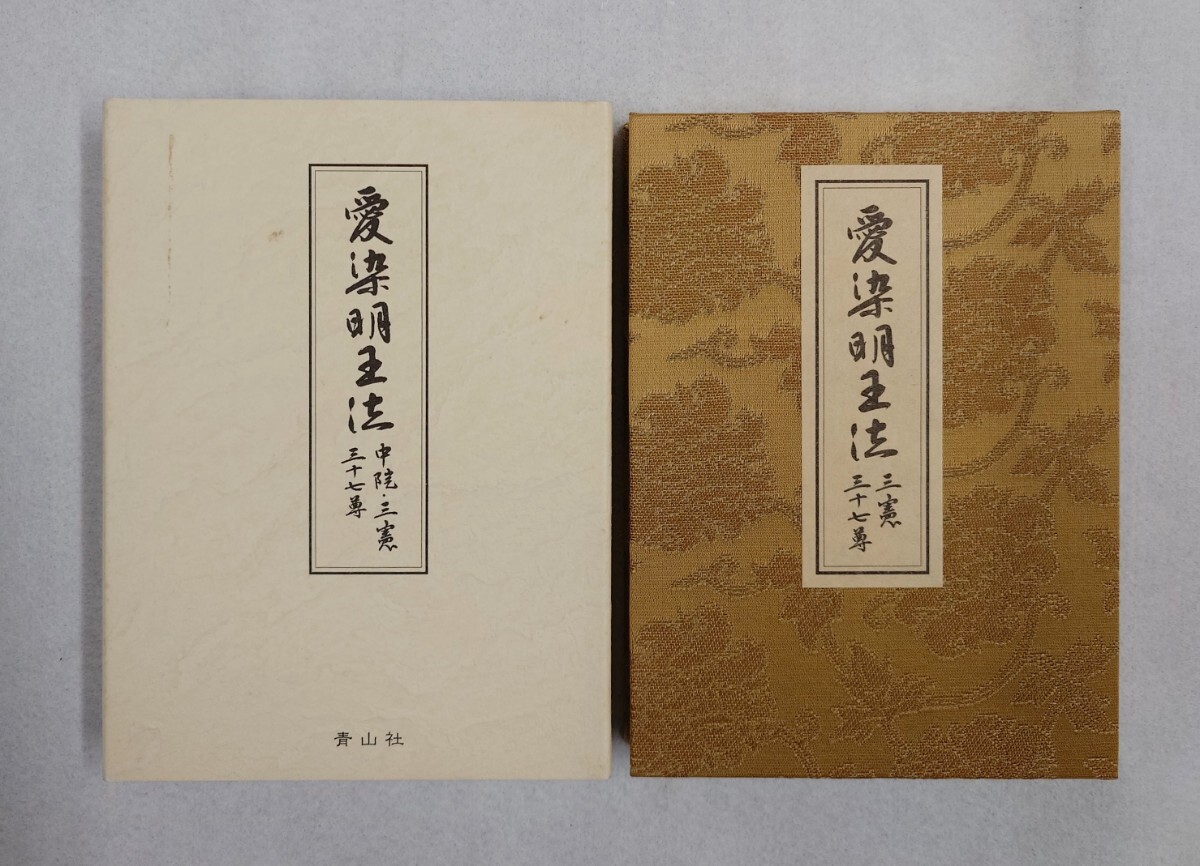 愛染明王法
中院・三憲
三十七尊
青山社
愛染明王法
三憲
三十七尊